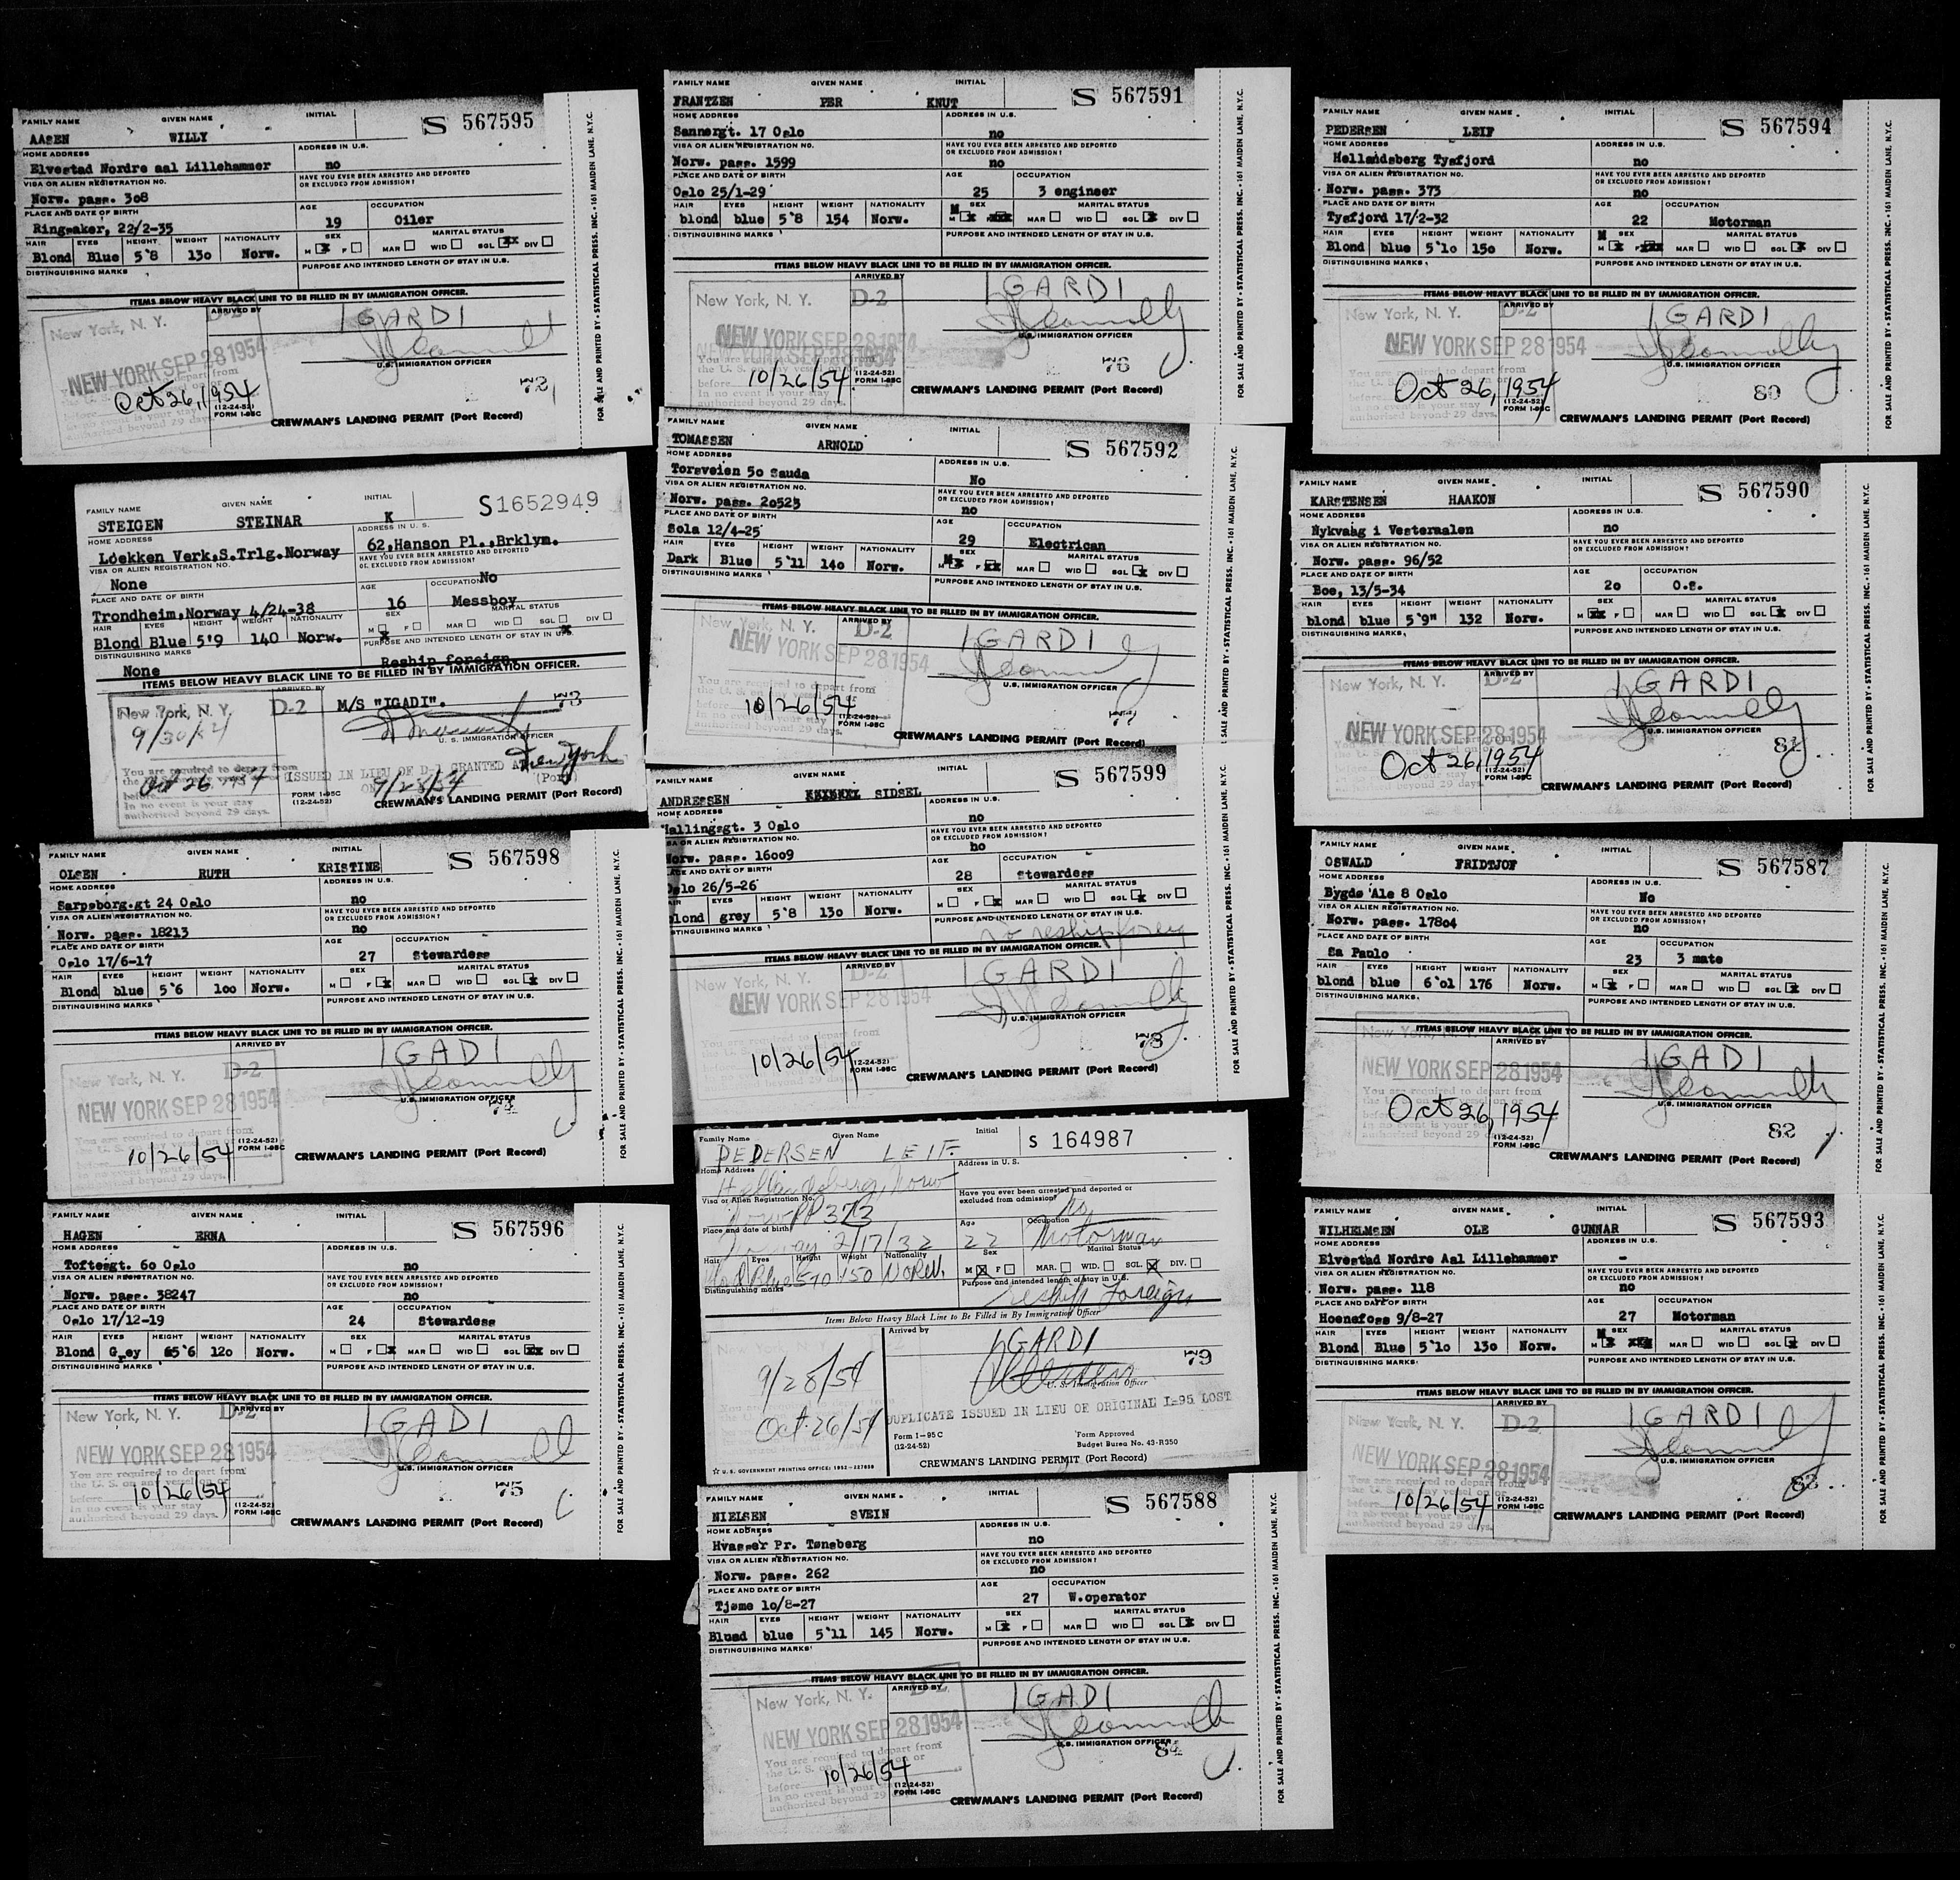 FAMILY NAME GIVEN NAME INITIAL
S 567595
AASEN WILLY
HOME ADDRESS ADDRESS IN U.S.
Elvestad Nordre aal Lillehammer no
VISA OR ALIEN REGISTRATION NO. HAVE YOU EVER BEEN ARRESTED AND DEPORTED OR EXCLUDED FROM ADMISSION?
Norw. pass. 308
PLACE AND DATE OF BIRTH AGE OCCUPATION
Ringsaker, 22/2-35 19 Oiler
HAIR EYES HEIGHT WEIGHT NATIONALITY SEX MARITAL STATUS
Blond Blue 5'8 130 Norw. M F MAR WID SGL DIV
DISTINGUISHING MARKS PURPOSE AND INTENDED LENGTH OF STAY IN U.S.
ITEMS BELOW HEAVY BLACK LINE TO BE FILLED IN BY IMMIGRATION OFFICER.
New York, N. Y. D-2 ARRIVED BY IGARDI
NEW YORK SEP 28 1954 U.S. IMMIGRATION OFFICER
Oct 26, 1954 72
authorized beyond 29 days.
(12-24-52)
FORM I-95C
CREWMAN'S LANDING PERMIT (Port Record)
FOR SALE AND PRINTED BY • STATISTICAL PRESS, INC. • 161 MAIDEN LANE, N.Y.C.
FAMILY NAME GIVEN NAME INITIAL
S1652949
STEIGEN STEINAR K
HOME ADDRESS ADDRESS IN U. S.
Loekken Verk.S.Trlg.Norway 62,Hanson Pl.,Brklyn.
VISA OR ALIEN REGISTRATION NO. HAVE YOU EVER BEEN ARRESTED AND DEPORTED OR EXCLUDED FROM ADMISSION?
None No
PLACE AND DATE OF BIRTH AGE OCCUPATION
Trondheim,Norway 4/24-38 16 Messboy
HAIR EYES HEIGHT WEIGHT NATIONALITY SEX MARITAL STATUS
Blond Blue 5'9 140 Norw. M F MAR WID SGL DIV
DISTINGUISHING MARKS PURPOSE AND INTENDED LENGTH OF STAY IN U.S.
None Reship foreign.
ITEMS BELOW HEAVY BLACK LINE TO BE FILLED IN BY IMMIGRATION OFFICER.
New York, N. Y. D-2 ARRIVED BY M/S "IGADI". 73
9/30/54 U. S. IMMIGRATION OFFICER
You are required to depart from
Oct 26 1954 ISSUED IN LIEU OF D-1 GRANTED AT New York (Port)
ON 9/28/54
In no event is your stay
authorized beyond 29 days.
FORM I-95C
(12-24-52)
CREWMAN'S LANDING PERMIT (Port Record)
FAMILY NAME GIVEN NAME INITIAL
S 567598
OLSEN RUTH KRISTINE
HOME ADDRESS ADDRESS IN U.S.
Sarpsborg.gt 24 Oslo no
VISA OR ALIEN REGISTRATION NO. HAVE YOU EVER BEEN ARRESTED AND DEPORTED OR EXCLUDED FROM ADMISSION?
Norw. pass. 18213 no
PLACE AND DATE OF BIRTH AGE OCCUPATION
Oslo 17/6-17 27 Stewardess
HAIR EYES HEIGHT WEIGHT NATIONALITY SEX MARITAL STATUS
Blond blue 5'6 100 Norw. M F MAR WID SGL DIV
DISTINGUISHING MARKS PURPOSE AND INTENDED LENGTH OF STAY IN U.S.
ITEMS BELOW HEAVY BLACK LINE TO BE FILLED IN BY IMMIGRATION OFFICER.
New York, N. Y. D-2 ARRIVED BY IGADI
NEW YORK SEP 28 1954 U.S. IMMIGRATION OFFICER
You are required to depart from 74
10/26/54
(12-24-52)
FORM I-95C
CREWMAN'S LANDING PERMIT (Port Record)
FOR SALE AND PRINTED BY • STATISTICAL PRESS, INC. • 161 MAIDEN LANE, N.Y.C.
FAMILY NAME GIVEN NAME INITIAL
S 567596
HAGEN ERNA
HOME ADDRESS ADDRESS IN U.S.
Toftesgt. 60 Oslo no
VISA OR ALIEN REGISTRATION NO. HAVE YOU EVER BEEN ARRESTED AND DEPORTED OR EXCLUDED FROM ADMISSION?
Norw. pass. 38247 no
PLACE AND DATE OF BIRTH AGE OCCUPATION
Oslo 17/12-19 24 Stewardess
HAIR EYES HEIGHT WEIGHT NATIONALITY SEX MARITAL STATUS
Blond Grey 5'6 120 Norw. M F MAR WID SGL DIV
DISTINGUISHING MARKS PURPOSE AND INTENDED LENGTH OF STAY IN U.S.
ITEMS BELOW HEAVY BLACK LINE TO BE FILLED IN BY IMMIGRATION OFFICER.
New York, N. Y. D-2 ARRIVED BY IGADI
NEW YORK SEP 28 1954 U.S. IMMIGRATION OFFICER
You are required to depart from
the U. S. on any vessel on or 75
before 10/26/54
In no event is your stay
authorized beyond 29 days.
(12-24-52)
FORM I-95C
CREWMAN'S LANDING PERMIT (Port Record)
FOR SALE AND PRINTED BY • STATISTICAL PRESS, INC. • 161 MAIDEN LANE, N.Y.C.
FAMILY NAME GIVEN NAME INITIAL
S 567591
FRANTZEN PER KNUT
HOME ADDRESS ADDRESS IN U.S.
Sannergt. 17 Oslo no
VISA OR ALIEN REGISTRATION NO. HAVE YOU EVER BEEN ARRESTED AND DEPORTED OR EXCLUDED FROM ADMISSION?
Norw. pass. 1599 no
PLACE AND DATE OF BIRTH AGE OCCUPATION
Oslo 25/1-29 25 3 engineer
HAIR EYES HEIGHT WEIGHT NATIONALITY SEX MARITAL STATUS
blond blue 5'8 154 Norw. M MAR WID SGL DIV
DISTINGUISHING MARKS PURPOSE AND INTENDED LENGTH OF STAY IN U.S.
ITEMS BELOW HEAVY BLACK LINE TO BE FILLED IN BY IMMIGRATION OFFICER.
New York, N. Y. D-2 ARRIVED BY IGARDI
NEW YORK SEP 28 1954 U.S. IMMIGRATION OFFICER
You are required to depart from
the U. S. on any vessel on or 76
before 10/26/54
In no event is your stay
authorized beyond 29 days.
(12-24-52)
FORM I-95C
CREWMAN'S LANDING PERMIT (Port Record)
FOR SALE AND PRINTED BY • STATISTICAL PRESS, INC. • 161 MAIDEN LANE, N.Y.C.
FAMILY NAME GIVEN NAME INITIAL
S 567592
TOMASSEN ARNOLD
HOME ADDRESS ADDRESS IN U.S.
Torsveien 50 Sauda No
VISA OR ALIEN REGISTRATION NO. HAVE YOU EVER BEEN ARRESTED AND DEPORTED OR EXCLUDED FROM ADMISSION?
Norw. pass. 20525 no
PLACE AND DATE OF BIRTH AGE OCCUPATION
Sola 12/4-25 29 Electrican
HAIR EYES HEIGHT WEIGHT NATIONALITY SEX MARITAL STATUS
Dark Blue 5'11 140 Norw. M F MAR WID SGL DIV
DISTINGUISHING MARKS PURPOSE AND INTENDED LENGTH OF STAY IN U.S.
ITEMS BELOW HEAVY BLACK LINE TO BE FILLED IN BY IMMIGRATION OFFICER.
New York, N. Y. D-2 ARRIVED BY IGARDI
NEW YORK SEP 28 1954
You are required to depart from U.S. IMMIGRATION OFFICER
the U. S. on any vessel on or
10/26/54 77
In no event is your stay
authorized beyond 29 days.
(12-24-52)
FORM I-95C
CREWMAN'S LANDING PERMIT (Port Record)
SALE AND PRINTED BY • STATISTICAL PRESS, INC. • 161 MAIDEN LANE, N.Y.C.
FAMILY NAME GIVEN NAME INITIAL
S 567599
ANDRESSEN SIDSEL
HOME ADDRESS ADDRESS IN U.S.
Hallingsgt. 3 Oslo no
VISA OR ALIEN REGISTRATION NO. HAVE YOU EVER BEEN ARRESTED AND DEPORTED OR EXCLUDED FROM ADMISSION?
Norw. pass. 16009 no
PLACE AND DATE OF BIRTH AGE OCCUPATION
Oslo 26/5-26 28 Stewardess
HAIR EYES HEIGHT WEIGHT NATIONALITY SEX MARITAL STATUS
blond grey 5'8 130 Norw. M F MAR WID SGL DIV
DISTINGUISHING MARKS PURPOSE AND INTENDED LENGTH OF STAY IN U.S.
to reship foreign
ITEMS BELOW HEAVY BLACK LINE TO BE FILLED IN BY IMMIGRATION OFFICER.
New York, N. Y. D-2 ARRIVED BY IGARDI
NEW YORK SEP 28 1954 U.S. IMMIGRATION OFFICER
78
10/26/54
(12-24-52)
FORM I-95C
CREWMAN'S LANDING PERMIT (Port Record)
FOR SALE AND PRINTED BY • STATISTICAL PRESS, INC. • 161 MAIDEN LANE, N.Y.C.
Family Name Given Name Initial
S 164987
PEDERSEN LEIF
Home Address Address in U. S.
Hellandsberg, Norw
Visa or Alien Registration No. Have you ever been arrested and deported or excluded from admission?
Norw PP 373 No
Place and date of birth Age Occupation
Norway 2/17/32 22 Motorman
Hair Eyes Height Weight Nationality Sex Marital Status
Blond Blue 5'10 150 NORW. M F MAR. WID. SGL. DIV.
Distinguishing marks Purpose and intended length of stay in U.S.
reship Foreign
Items Below Heavy Black Line to Be Filled in By Immigration Officer
Arrived by IGARDI
9/28/54 79
U. S. Immigration Officer
Oct. 26/54 DUPLICATE ISSUED IN LIEU OF ORIGINAL I-95 LOST
Form I-95 C Form Approved
(12-24-52) Budget Bureau No. 43-R350
☆ U. S. GOVERNMENT PRINTING OFFICE: 1952—227898
CREWMAN'S LANDING PERMIT (Port Record)
FAMILY NAME GIVEN NAME INITIAL
S 567588
NIELSEN SVEIN
HOME ADDRESS ADDRESS IN U.S.
Hvasser Pr. Tønsberg no
VISA OR ALIEN REGISTRATION NO. HAVE YOU EVER BEEN ARRESTED AND DEPORTED OR EXCLUDED FROM ADMISSION?
Norw. pass. 262 no
PLACE AND DATE OF BIRTH AGE OCCUPATION
Tjøme 10/8-27 27 W.operator
HAIR EYES HEIGHT WEIGHT NATIONALITY SEX MARITAL STATUS
Blund blue 5'11 145 Norw. M F MAR WID SGL DIV
DISTINGUISHING MARKS PURPOSE AND INTENDED LENGTH OF STAY IN U.S.
ITEMS BELOW HEAVY BLACK LINE TO BE FILLED IN BY IMMIGRATION OFFICER.
New York, N. Y. D-2 ARRIVED BY IGADI
NEW YORK SEP 28 1954
You are required to depart from U.S. IMMIGRATION OFFICER
the U. S. on any vessel on or 84
before 10/26/54
In no event is your stay
authorized beyond 29
(12-24-52)
FORM I-95C
CREWMAN'S LANDING PERMIT (Port Record)
FOR SALE AND PRINTED BY • STATISTICAL PRESS, INC. • 161 MAIDEN LANE, N.Y.C.
FAMILY NAME GIVEN NAME INITIAL
S 567594
PEDERSEN LEIF
HOME ADDRESS ADDRESS IN U.S.
Hellandsberg Tysfjord no
VISA OR ALIEN REGISTRATION NO. HAVE YOU EVER BEEN ARRESTED AND DEPORTED OR EXCLUDED FROM ADMISSION?
Norw. pass. 373 no
PLACE AND DATE OF BIRTH AGE OCCUPATION
Tysfjord 17/2-32 22 Motorman
HAIR EYES HEIGHT WEIGHT NATIONALITY SEX MARITAL STATUS
Blond blue 5'10 150 Norw. M F MAR WID SGL DIV
DISTINGUISHING MARKS PURPOSE AND INTENDED LENGTH OF STAY IN U.S.
ITEMS BELOW HEAVY BLACK LINE TO BE FILLED IN BY IMMIGRATION OFFICER.
New York, N. Y. D-2 ARRIVED BY IGARDI
NEW YORK SEP 28 1954 U.S. IMMIGRATION OFFICER
You are required to depart from
Oct 26, 1954 80
In no event is your stay
authorized beyond 29 days.
(12-24-52)
FORM I-95C
CREWMAN'S LANDING PERMIT (Port Record)
FOR SALE AND PRINTED BY • STATISTICAL PRESS, INC. • 161 MAIDEN LANE, N.Y.C.
FAMILY NAME GIVEN NAME INITIAL
S 567590
KARSTENSEN HAAKON
HOME ADDRESS ADDRESS IN U.S.
Nykvaag i Vesteraalen no
VISA OR ALIEN REGISTRATION NO. HAVE YOU EVER BEEN ARRESTED AND DEPORTED OR EXCLUDED FROM ADMISSION?
Norw. pass. 96/52
PLACE AND DATE OF BIRTH AGE OCCUPATION
Boe, 13/5-34 20 O.s.
HAIR EYES HEIGHT WEIGHT NATIONALITY SEX MARITAL STATUS
blond blue 5'9" 132 Norw. M F MAR WID SGL DIV
DISTINGUISHING MARKS PURPOSE AND INTENDED LENGTH OF STAY IN U.S.
ITEMS BELOW HEAVY BLACK LINE TO BE FILLED IN BY IMMIGRATION OFFICER.
New York, N. Y. D-2 ARRIVED BY IGARDI
NEW YORK SEP 28 1954 U.S. IMMIGRATION OFFICER
Oct 26, 1954 81
In no event is your stay
authorized beyond 29 days.
(12-24-52)
FORM I-95C
CREWMAN'S LANDING PERMIT (Port Record)
FOR SALE AND PRINTED BY • STATISTICAL PRESS, INC. • 161 MAIDEN LANE, N.Y.C.
FAMILY NAME GIVEN NAME INITIAL
S 567587
OSWALD FRIDTJOF
HOME ADDRESS ADDRESS IN U.S.
Bygdø Ale 8 Oslo No
VISA OR ALIEN REGISTRATION NO. HAVE YOU EVER BEEN ARRESTED AND DEPORTED OR EXCLUDED FROM ADMISSION?
Norw. pass. 17804 no
PLACE AND DATE OF BIRTH AGE OCCUPATION
Sa Paulo 23 3 mate
HAIR EYES HEIGHT WEIGHT NATIONALITY SEX MARITAL STATUS
blond blue 6'01 176 Norw. M F MAR WID SGL DIV
DISTINGUISHING MARKS PURPOSE AND INTENDED LENGTH OF STAY IN U.S.
ITEMS BELOW HEAVY BLACK LINE TO BE FILLED IN BY IMMIGRATION OFFICER.
New York, N. Y. ARRIVED BY IGADI
NEW YORK SEP 28 1954
You are required to depart from U.S. IMMIGRATION OFFICER
Oct 26, 1954 82
authorized beyond 29 days.
(12-24-52)
FORM I-95C
CREWMAN'S LANDING PERMIT (Port Record)
FOR SALE AND PRINTED BY • STATISTICAL PRESS, INC. • 161 MAIDEN LANE, N.Y.C.
FAMILY NAME GIVEN NAME INITIAL
S 567593
WILHELMSEN OLE GUNNAR
HOME ADDRESS ADDRESS IN U.S.
Elvestad Nordre Aal Lillehammer -
VISA OR ALIEN REGISTRATION NO. HAVE YOU EVER BEEN ARRESTED AND DEPORTED OR EXCLUDED FROM ADMISSION?
Norw. pass. 118 no
PLACE AND DATE OF BIRTH AGE OCCUPATION
Hoenefoss 9/8-27 27 Motorman
HAIR EYES HEIGHT WEIGHT NATIONALITY SEX MARITAL STATUS
Blond Blue 5'10 130 Norw. M MAR WID SGL DIV
DISTINGUISHING MARKS PURPOSE AND INTENDED LENGTH OF STAY IN U.S.
ITEMS BELOW HEAVY BLACK LINE TO BE FILLED IN BY IMMIGRATION OFFICER.
New York, N. Y. D-2 ARRIVED BY IGARDI
NEW YORK SEP 28 1954 U.S. IMMIGRATION OFFICER
You are required to depart from
the U. S. on any vessel on or 83
before 10/26/54
In no event is your stay
authorized beyond 29 days.
(12-24-52)
FORM I-95C
CREWMAN'S LANDING PERMIT (Port Record)
FOR SALE AND PRINTED BY • STATISTICAL PRESS, INC. • 161 MAIDEN LANE, N.Y.C.